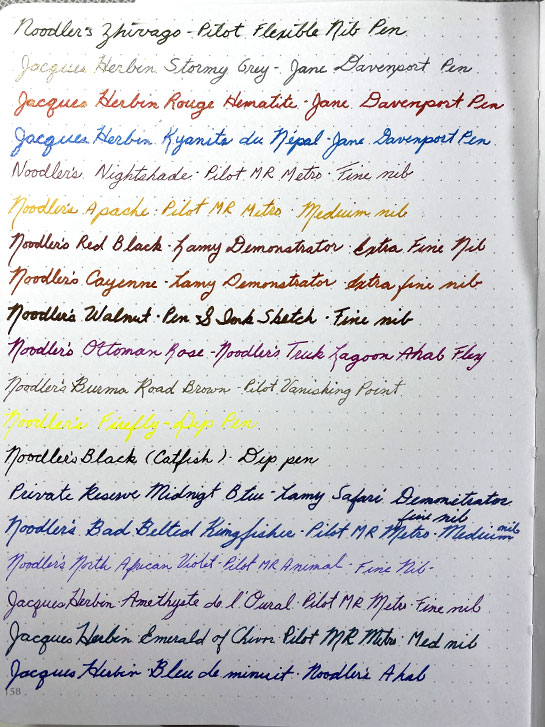 Noodler's Zhivago - Pilot Flexible Nib Pen
Jacques Herbin Stormy Grey - Jane Davenport Pen
Jacques Herbin Rouge Hematite · Jane Davenport Pen
Jacques Herbin Kyanite du Népal - Jane Davenport Pen
Noodler's Nightshade · Pilot MR Metro · Fine nib
Noodler's Apache · Pilot MR Metro · Medium nib
Noodler's Red Black · Lamy Demonstrator · Extra Fine Nib
Noodler's Cayenne · Lamy Demonstrator extra fine nib
Noodler's Walnut · Pen & Ink Sketch · Fine nib
Noodler's Ottoman Rose - Noodler's Truk Lagoon Ahab Flex
Noodler's Burma Road Brown - Pilot Vanishing Point
Noodler's Firefly - Dip Pen
Noodler's Black (Catfish) · Dip pen
Private Reserve Midnigt Blue - Lamy Safari Demonstrator
fine nib
Noodler's Bad Belted Kingfisher - Pilot MR Metro - Medium nib
Noodler's North African Violet - Pilot MR Animal - Fine Nib
Jacques Herbin Amethyste de l'Oural · Pilot MR Metro - Fine nib
Jacques Herbin · Emerald of Chivor · Pilot MR Metro · Med nib
Jacques Herbin · Bleu de minuit · Noodler's Ahab
58